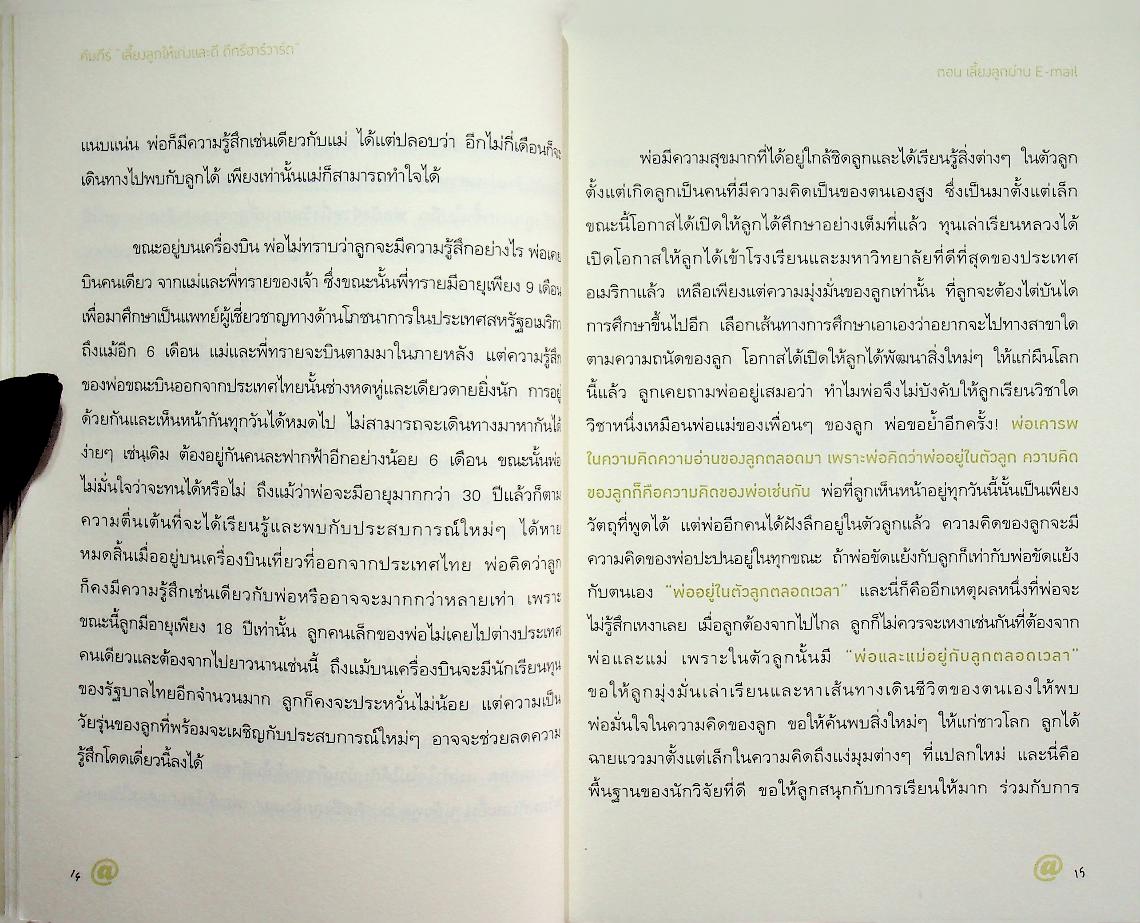 คัมภีร์ "เลี้ยงลูกให้เก่งและดี ดีกรีฮาร์วาร์ด"
แนบแน่น พ่อก็มีความรู้สึกเช่นเดียวกับแม่ ได้แต่ปลอบว่า อีกไม่กี่เดือนก็จะ
เดินทางไปพบกับลูกได้ เพียงเท่านั้นแม่ก็สามารถทำใจได้
ขณะอยู่บนเครื่องบิน พ่อไม่ทราบว่าลูกจะมีความรู้สึกอย่างไร พ่อเคย
บินคนเดียว จากแม่และพี่ทรายของเจ้า ซึ่งขณะนั้นพี่ทรายมีอายุเพียง 9 เดือน
เพื่อมาศึกษาเป็นแพทย์ผู้เชี่ยวชาญทางด้านโภชนาการในประเทศสหรัฐอเมริกา
ถึงแม้อีก 6 เดือน แม่และพี่ทรายจะบินตามมาในภายหลัง แต่ความรู้สึก
ของพ่อขณะบินออกจากประเทศไทยนั้นช่างหดหู่และเดียวดายยิ่งนัก การอยู่
ด้วยกันและเห็นหน้ากันทุกวันได้หมดไป ไม่สามารถจะเดินทางมาหากันได้
ง่ายๆ เช่นเดิม ต้องอยู่กันคนละฟากฟ้าอีกอย่างน้อย 6 เดือน ขณะนั้นพ่อ
ไม่มั่นใจว่าจะทนได้หรือไม่ ถึงแม้ว่าพ่อจะมีอายุมากกว่า 30 ปีแล้วก็ตาม
ความตื่นเต้นที่จะได้เรียนรู้และพบกับประสบการณ์ใหม่ๆ ได้หาย
หมดสิ้นเมื่ออยู่บนเครื่องบินเที่ยวที่ออกจากประเทศไทย พ่อคิดว่าลูก
ก็คงมีความรู้สึกเช่นเดียวกับพ่อหรืออาจจะมากกว่าหลายเท่า เพราะ
ขณะนี้ลูกมีอายุเพียง 18 ปีเท่านั้น ลูกคนเล็กของพ่อไม่เคยไปต่างประเทศ
คนเดียวและต้องจากไปยาวนานเช่นนี้ ถึงแม้บนเครื่องบินจะมีนักเรียนทุน
ของรัฐบาลไทยอีกจำนวนมาก ลูกก็คงจะประหวั่นไม่น้อย แต่ความเป็น
วัยรุ่นของลูกที่พร้อมจะเผชิญกับประสบการณ์ใหม่ๆ อาจจะช่วยลดความ
รู้สึกโดดเดี่ยวนี้ลงได้
14 @
ตอน เลี้ยงลูกผ่าน E-mail
พ่อมีความสุขมากที่ได้อยู่ใกล้ชิดลูกและได้เรียนรู้สิ่งต่างๆ ในตัวลูก
ตั้งแต่เกิดลูกเป็นคนที่มีความคิดเป็นของตนเองสูง ซึ่งเป็นมาตั้งแต่เล็ก
ขณะนี้โอกาสได้เปิดให้ลูกได้ศึกษาอย่างเต็มที่แล้ว ทุนเล่าเรียนหลวงได้
เปิดโอกาสให้ลูกได้เข้าโรงเรียนและมหาวิทยาลัยที่ดีที่สุดของประเทศ
อเมริกาแล้ว เหลือเพียงแต่ความมุ่งมั่นของลูกเท่านั้น ที่ลูกจะต้องไต่บันได
การศึกษาขึ้นไปอีก เลือกเส้นทางการศึกษาเอาเองว่าอยากจะไปทางสาขาใด
ตามความถนัดของลูก โอกาสได้เปิดให้ลูกได้พัฒนาสิ่งใหม่ๆ ให้แก่ผืนโลก
นี้แล้ว ลูกเคยถามพ่ออยู่เสมอว่า ทำไมพ่อจึงไม่บังคับให้ลูกเรียนวิชาใด
วิชาหนึ่งเหมือนพ่อแม่ของเพื่อนๆ ของลูก พ่อขอย้ำอีกครั้ง! พ่อเคารพ
ในความคิดความอ่านของลูกตลอดมา เพราะพ่อคิดว่าพ่ออยู่ในตัวลูก ความคิด
ของลูกก็คือความคิดของพ่อเช่นกัน พ่อที่ลูกเห็นหน้าอยู่ทุกวันนี้นั้นเป็นเพียง
วัตถุที่พูดได้ แต่พ่ออีกคนได้ฝังลึกอยู่ในตัวลูกแล้ว ความคิดของลูกจะมี
ความคิดของพ่อปะปนอยู่ในทุกขณะ ถ้าพ่อขัดแย้งกับลูกก็เท่ากับพ่อขัดแย้ง
กับตนเอง "พ่ออยู่ในตัวลูกตลอดเวลา" และนี่ก็คืออีกเหตุผลหนึ่งที่พ่อจะ
ไม่รู้สึกเหงาเลย เมื่อลูกต้องจากไปไกล ลูกก็ไม่ควรจะเหงาเช่นกันที่ต้องจาก
พ่อและแม่ เพราะในตัวลูกนั้นมี "พ่อและแม่อยู่กับลูกตลอดเวลา"
ขอให้ลูกมุ่งมั่นเล่าเรียนและหาเส้นทางเดินชีวิตของตนเองให้พบ
พ่อมั่นใจในความคิดของลูก ขอให้ค้นพบสิ่งใหม่ๆ ให้แก่ชาวโลก ลูกได้
ฉายแววมาตั้งแต่เล็กในความคิดถึงแง่มุมต่างๆ ที่แปลกใหม่ และนี่คือ
พื้นฐานของนักวิจัยที่ดี ขอให้ลูกสนุกกับการเรียนให้มาก ร่วมกับการ
@ 15